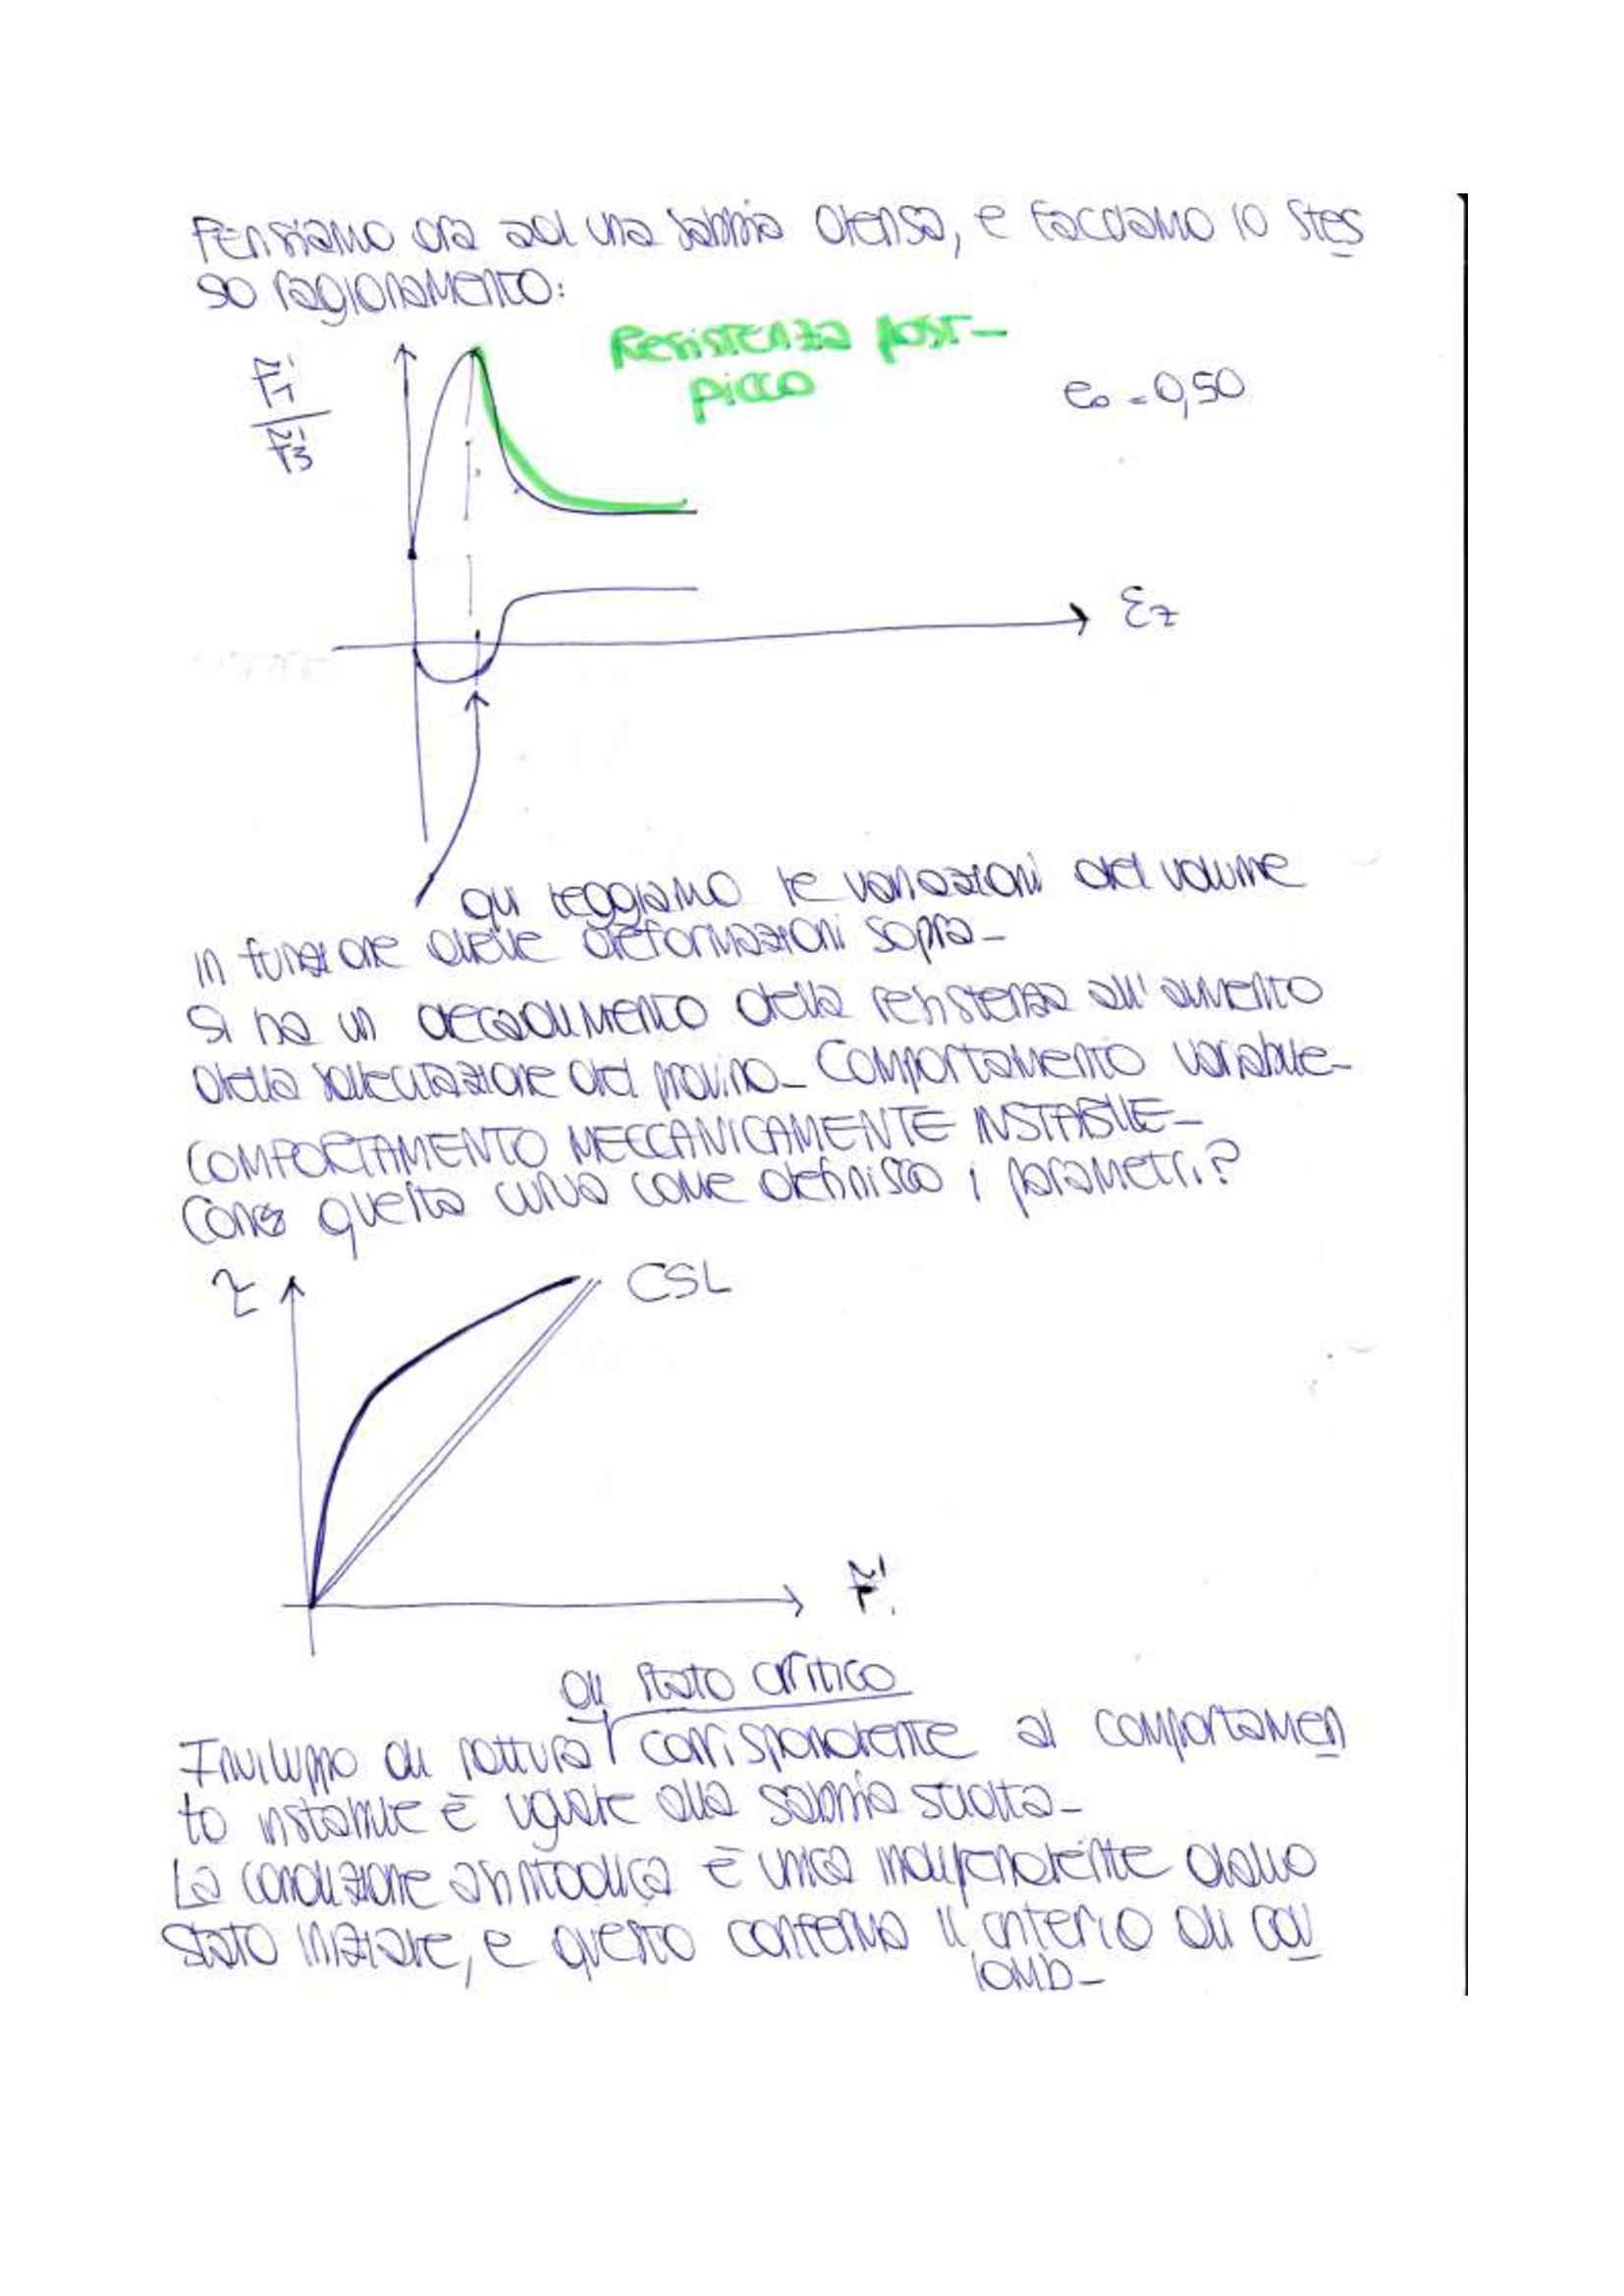 Pensiamo ora ad una sabbia densa, e facciamo lo stes
so ragionamento:
Resistenza post-
picco
σ'1
σ'3
e₀ = 0,50
εz
qui leggiamo le variazioni del volume
in funzione delle deformazioni sopra_
Si ha un decadimento della resistenza all'aumento
della sollecitazione del provino_ Comportamento variabile_
COMPORTAMENTO MECCANICAMENTE INSTABILE_
Con questa curva come definisco i parametri?
τ
CSL
σ'
di stato critico
Inviluppo di rottura corrispondente al comportamen
to instabile è uguale alla sabbia sciolta_
La condizione asintotica è unica indipendente dallo
stato iniziale, e questo conferma il criterio di cou
lomb_